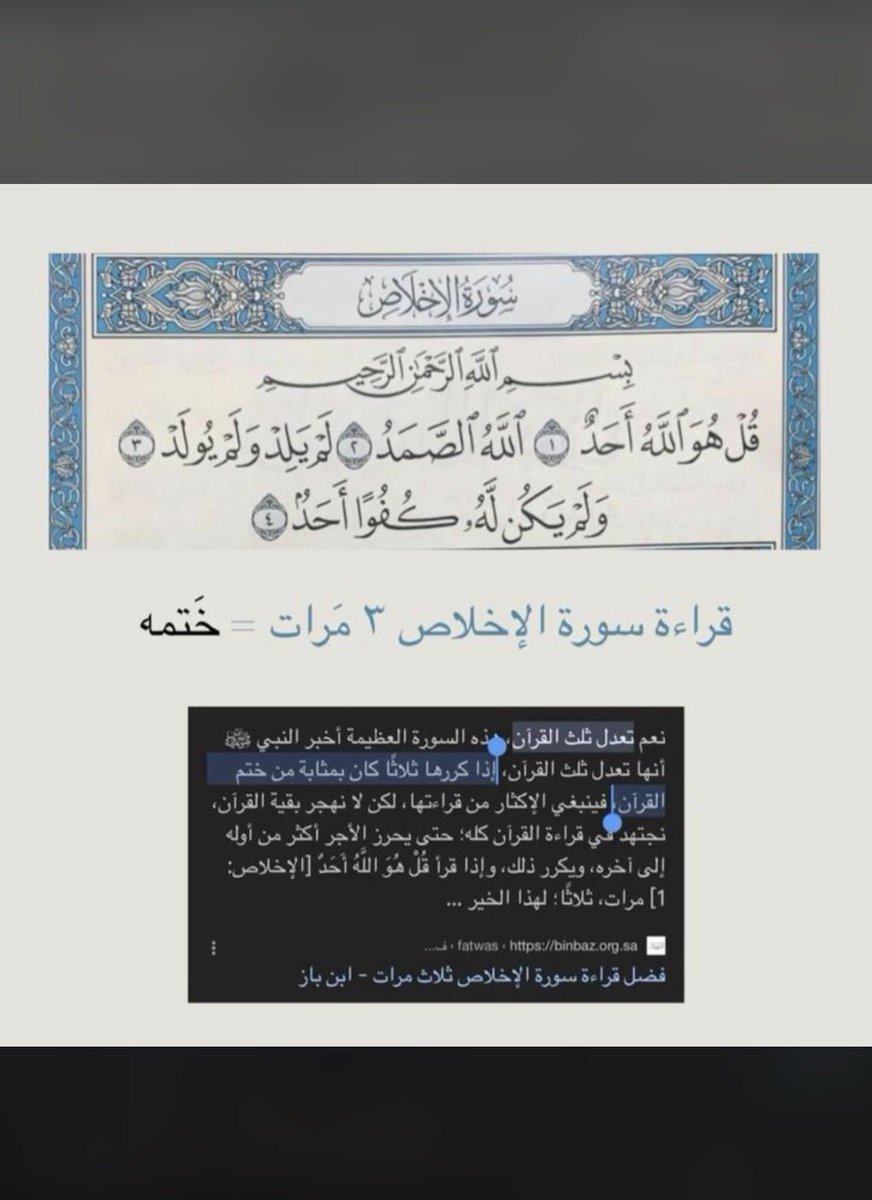 سُورَةُ الإِخْلَاصِ
بِسْمِ ٱللَّهِ ٱلرَّحْمَٰنِ ٱلرَّحِيمِ
قُلْ هُوَ ٱللَّهُ أَحَدٌ ١ ٱللَّهُ ٱلصَّمَدُ ٢ لَمْ يَلِدْ وَلَمْ يُولَدْ ٣
وَلَمْ يَكُن لَّهُۥ كُفُوًا أَحَدٌۢ ٤
قراءة سورة الإخلاص ٣ مَرات = خَتمه
نعم تعدل ثلث القرآن، هذه السورة العظيمة أخبر النبي ﷺ
أنها تعدل ثلث القرآن، إذا كررها ثلاثًا كان بمثابة من ختم
القرآن، فينبغي الإكثار من قراءتها، لكن لا نهجر بقية القرآن،
نجتهد في قراءة القرآن كله؛ حتى يحرز الأجر أكثر من أوله
إلى آخره، ويكرر ذلك، وإذا قرأ قُلْ هُوَ اللَّهُ أَحَدٌ [الإخلاص:
1] مرات، ثلاثًا؛ لهذا الخير ...
https://binbaz.org.sa › fatwas › ف...
فضل قراءة سورة الإخلاص ثلاث مرات - ابن باز